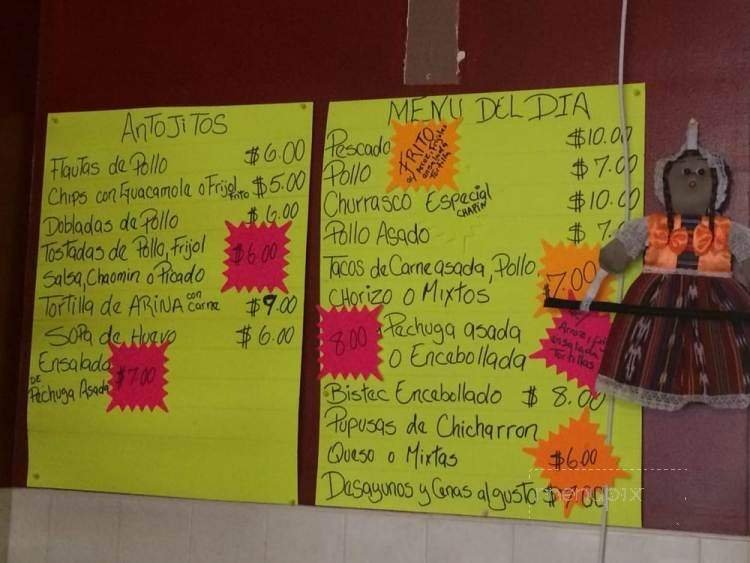 ANTOJITOS
Flautas de Pollo $6.00
Chips con Guacamole o Frijol FRITO $5.00
Dobladas de Pollo $6.00
Tostadas de Pollo, Frijol
Salsa, Chaomin o Picado $6.00
Tortilla de ARINA con carne $9.00
Sopa de Huevo $6.00
Ensalada
DE Pechuga Asada $7.00
MENU DEL DIA
Pescado $10.00
Pollo $7.00
FRITO
c/ Arroz, Frijoles
ensalada
Tortilla
Churrasco Especial CHAPIN $10.00
Pollo Asado $7.
Tacos de Carne asada, Pollo
Chorizo o Mixtos 7.00
8.00 Pechuga asada
o Encabollada
Arroz, frij
ensalada
Tortillas
Bistec Encabollado $8.00
Pupusas de Chicharron
Queso o Mixtas $6.00
Desayunos y Cenas al gusto $7.00